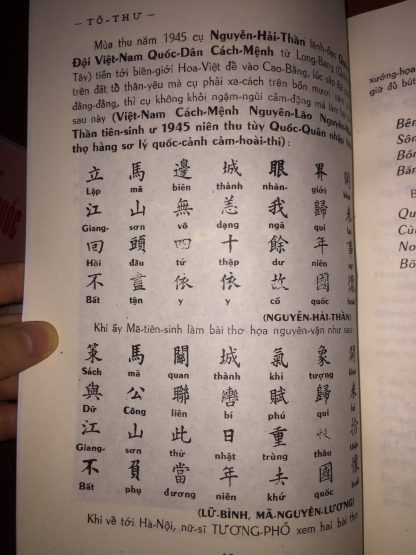 — TỐ-THƯ —
Mùa thu năm 1945 cụ Nguyễn-Hải-Thần lãnh-đạo
Đội Việt-Nam Quốc-Dân Cách-Mệnh từ Long-Bang
Tây) tiến tới biên-giới Hoa-Việt để vào Cao-Bằng, lúc sắp
trên đất tổ thân-yêu mà cụ phải xa-cách trên bốn mươi năm
đằng-đẳng, thì cụ không khỏi ngậm-ngùi cảm-động mà làm
sau này (Việt-Nam Cách-Mệnh Nguyên-Lão Nguyễn-Hải
Thần tiên-sinh ư 1945 niên thu tùy Quốc-Quân nhập Việt
thọ hàng sơ lý quốc-cảnh cảm-hoài-thi) :
立 馬 邊 城 眼 界 開
Lập mã biên thành nhãn- giới
江 山 無 恙 我 歸 來
Giang- sơn vô dạng ngã qui
回 頭 四 十 餘 年 事
Hồi đầu tứ thập dư niên
不 盡 依 依 故 國 懷
Bất tận y y cố quốc
(NGUYỄN-HẢI-THẦN)
Khi ấy Mã-tiên-sinh làm bài thơ họa nguyên-vận như sau
策 馬 關 城 氣 象 開
Sách mã quan thành khí tượng
與 公 聯 轡 賦 歸 來
Dữ Công liên bí phú qui
江 山 此 日 重 收 拾
Giang- sơn thử nhật trùng thâu
不 負 當 年 去 國 懷
Bất phụ đương niên khứ quốc
(LỮ-BÌNH, MÃ-NGUYÊN-LƯƠNG)
Khi về tới Hà-Nội, nữ-sĩ TƯƠNG-PHỐ xem hai bài thơ
xướng-họa
giữ đủ bút